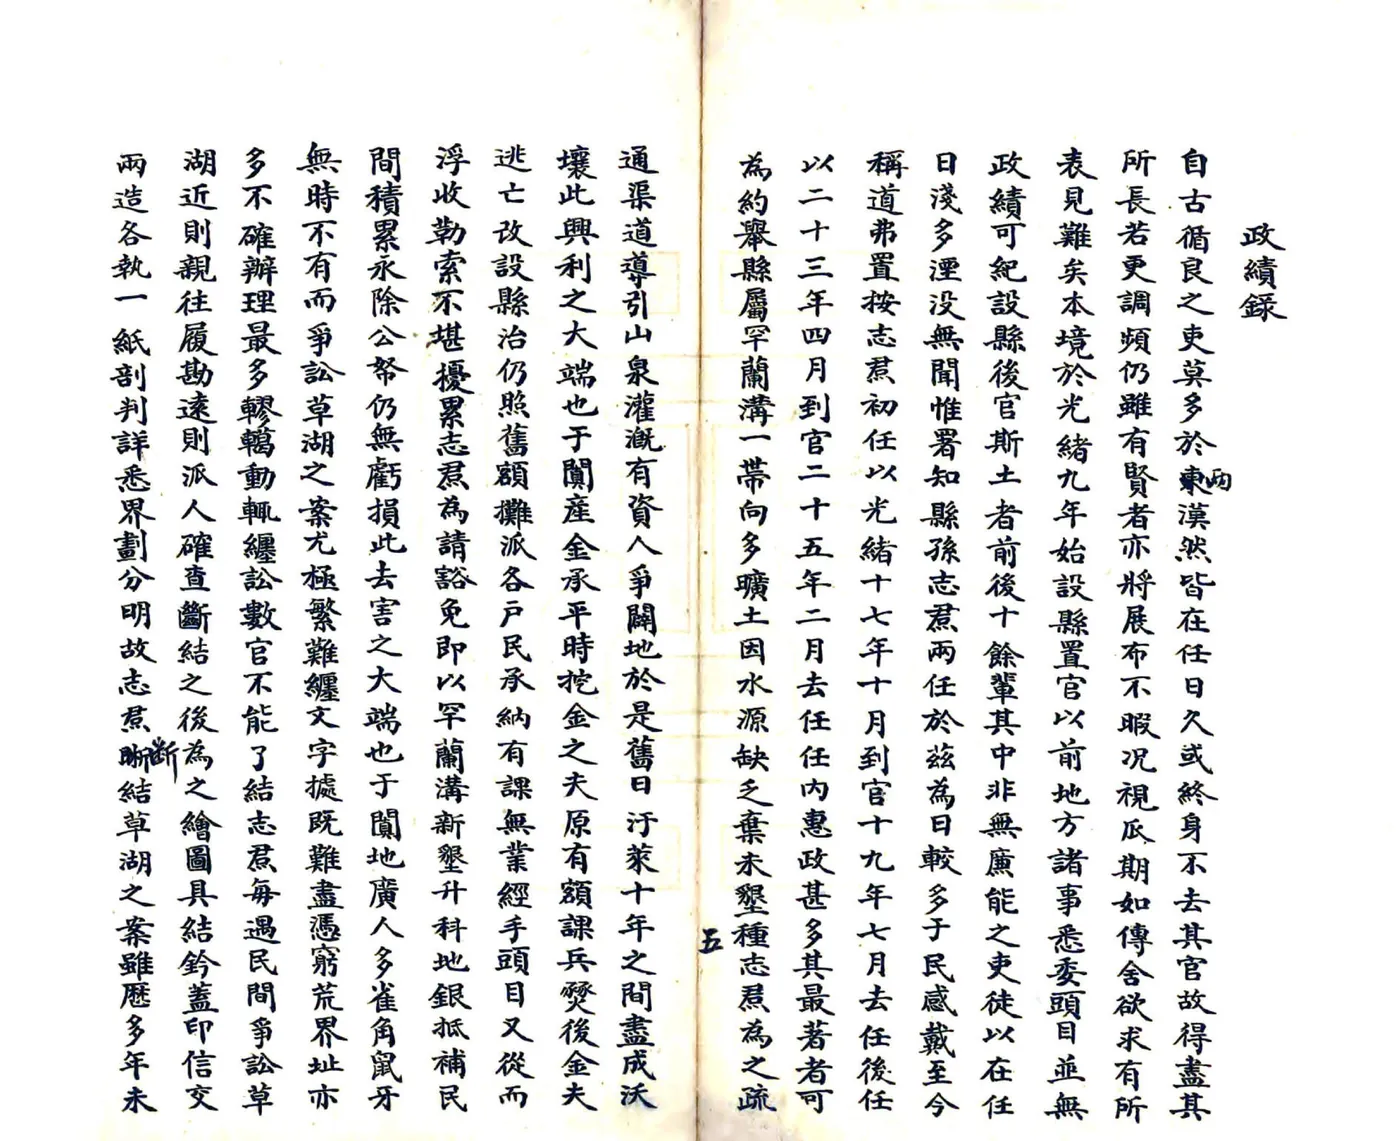 政績錄
自古循良之吏莫多於兩漢然皆在任日久或終身不去其官故得盡其
所長若更調頻仍雖有賢者亦將展布不暇况視瓜期如傳舍欲求有所
表見難矣本境於光緒九年始設縣置官以前地方諸事悉委頭目並無
政績可紀設縣後官斯土者前後十餘輩其中非無廉能之吏徒以在任
日淺多湮没無聞惟署知縣孫志焄兩任於茲為日較多于民感戴至今
稱道弗置按志焄初任以光緒十七年十月到官十九年七月去任後任
以二十三年四月到官二十五年二月去任任內惠政甚多其最著者可
為約舉縣屬罕蘭溝一帶向多曠土因水源缺乏棄未墾種志焄為之疏
五
通渠道導引山泉灌溉有資人爭闢地於是舊日汙萊十年之間盡成沃
壤此興利之大端也于闐産金承平時挖金之夫原有額課兵燹後金夫
逃亡改設縣治仍照舊額攤派各戶民承納有課無業經手頭目又從而
浮收勒索不堪擾累志焄為請豁免即以罕蘭溝新墾升科地銀抵補民
間積累永除公帑仍無虧損此去害之大端也于闐地廣人多雀角鼠牙
無時不有而爭訟草湖之案尤極繁難纒文字據既難盡憑窮荒界址亦
多不確辦理最多轇轕動輒纒訟數官不能了結志焄每遇民間爭訟草
湖近則親往履勘遠則派人確查斷結之後為之繪圖具結鈐蓋印信交
兩造各執一紙剖判詳悉界劃分明故志焄斷結草湖之案雖歷多年未